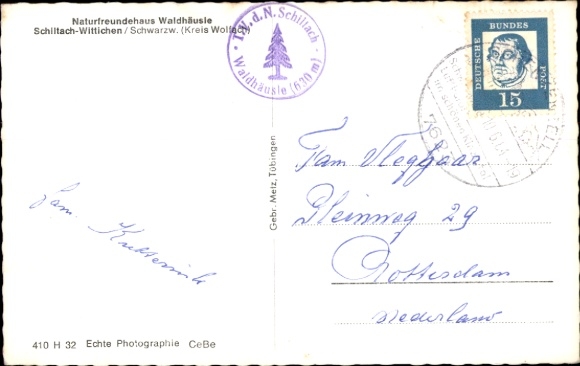 Naturfreundehaus Waldhäusle
Schiltach-Wittichen / Schwarzw. (Kreis Wolfach)
T.V.d.N. Schiltach
Waldhäusle (630 m)
DEUTSCHE BUNDESPOST
15
Gebr. Metz, Tübingen
Fam Vleggaar
29
Rotterdam
Nederland
Fam.
410 H 32 Echte Photographie CeBe